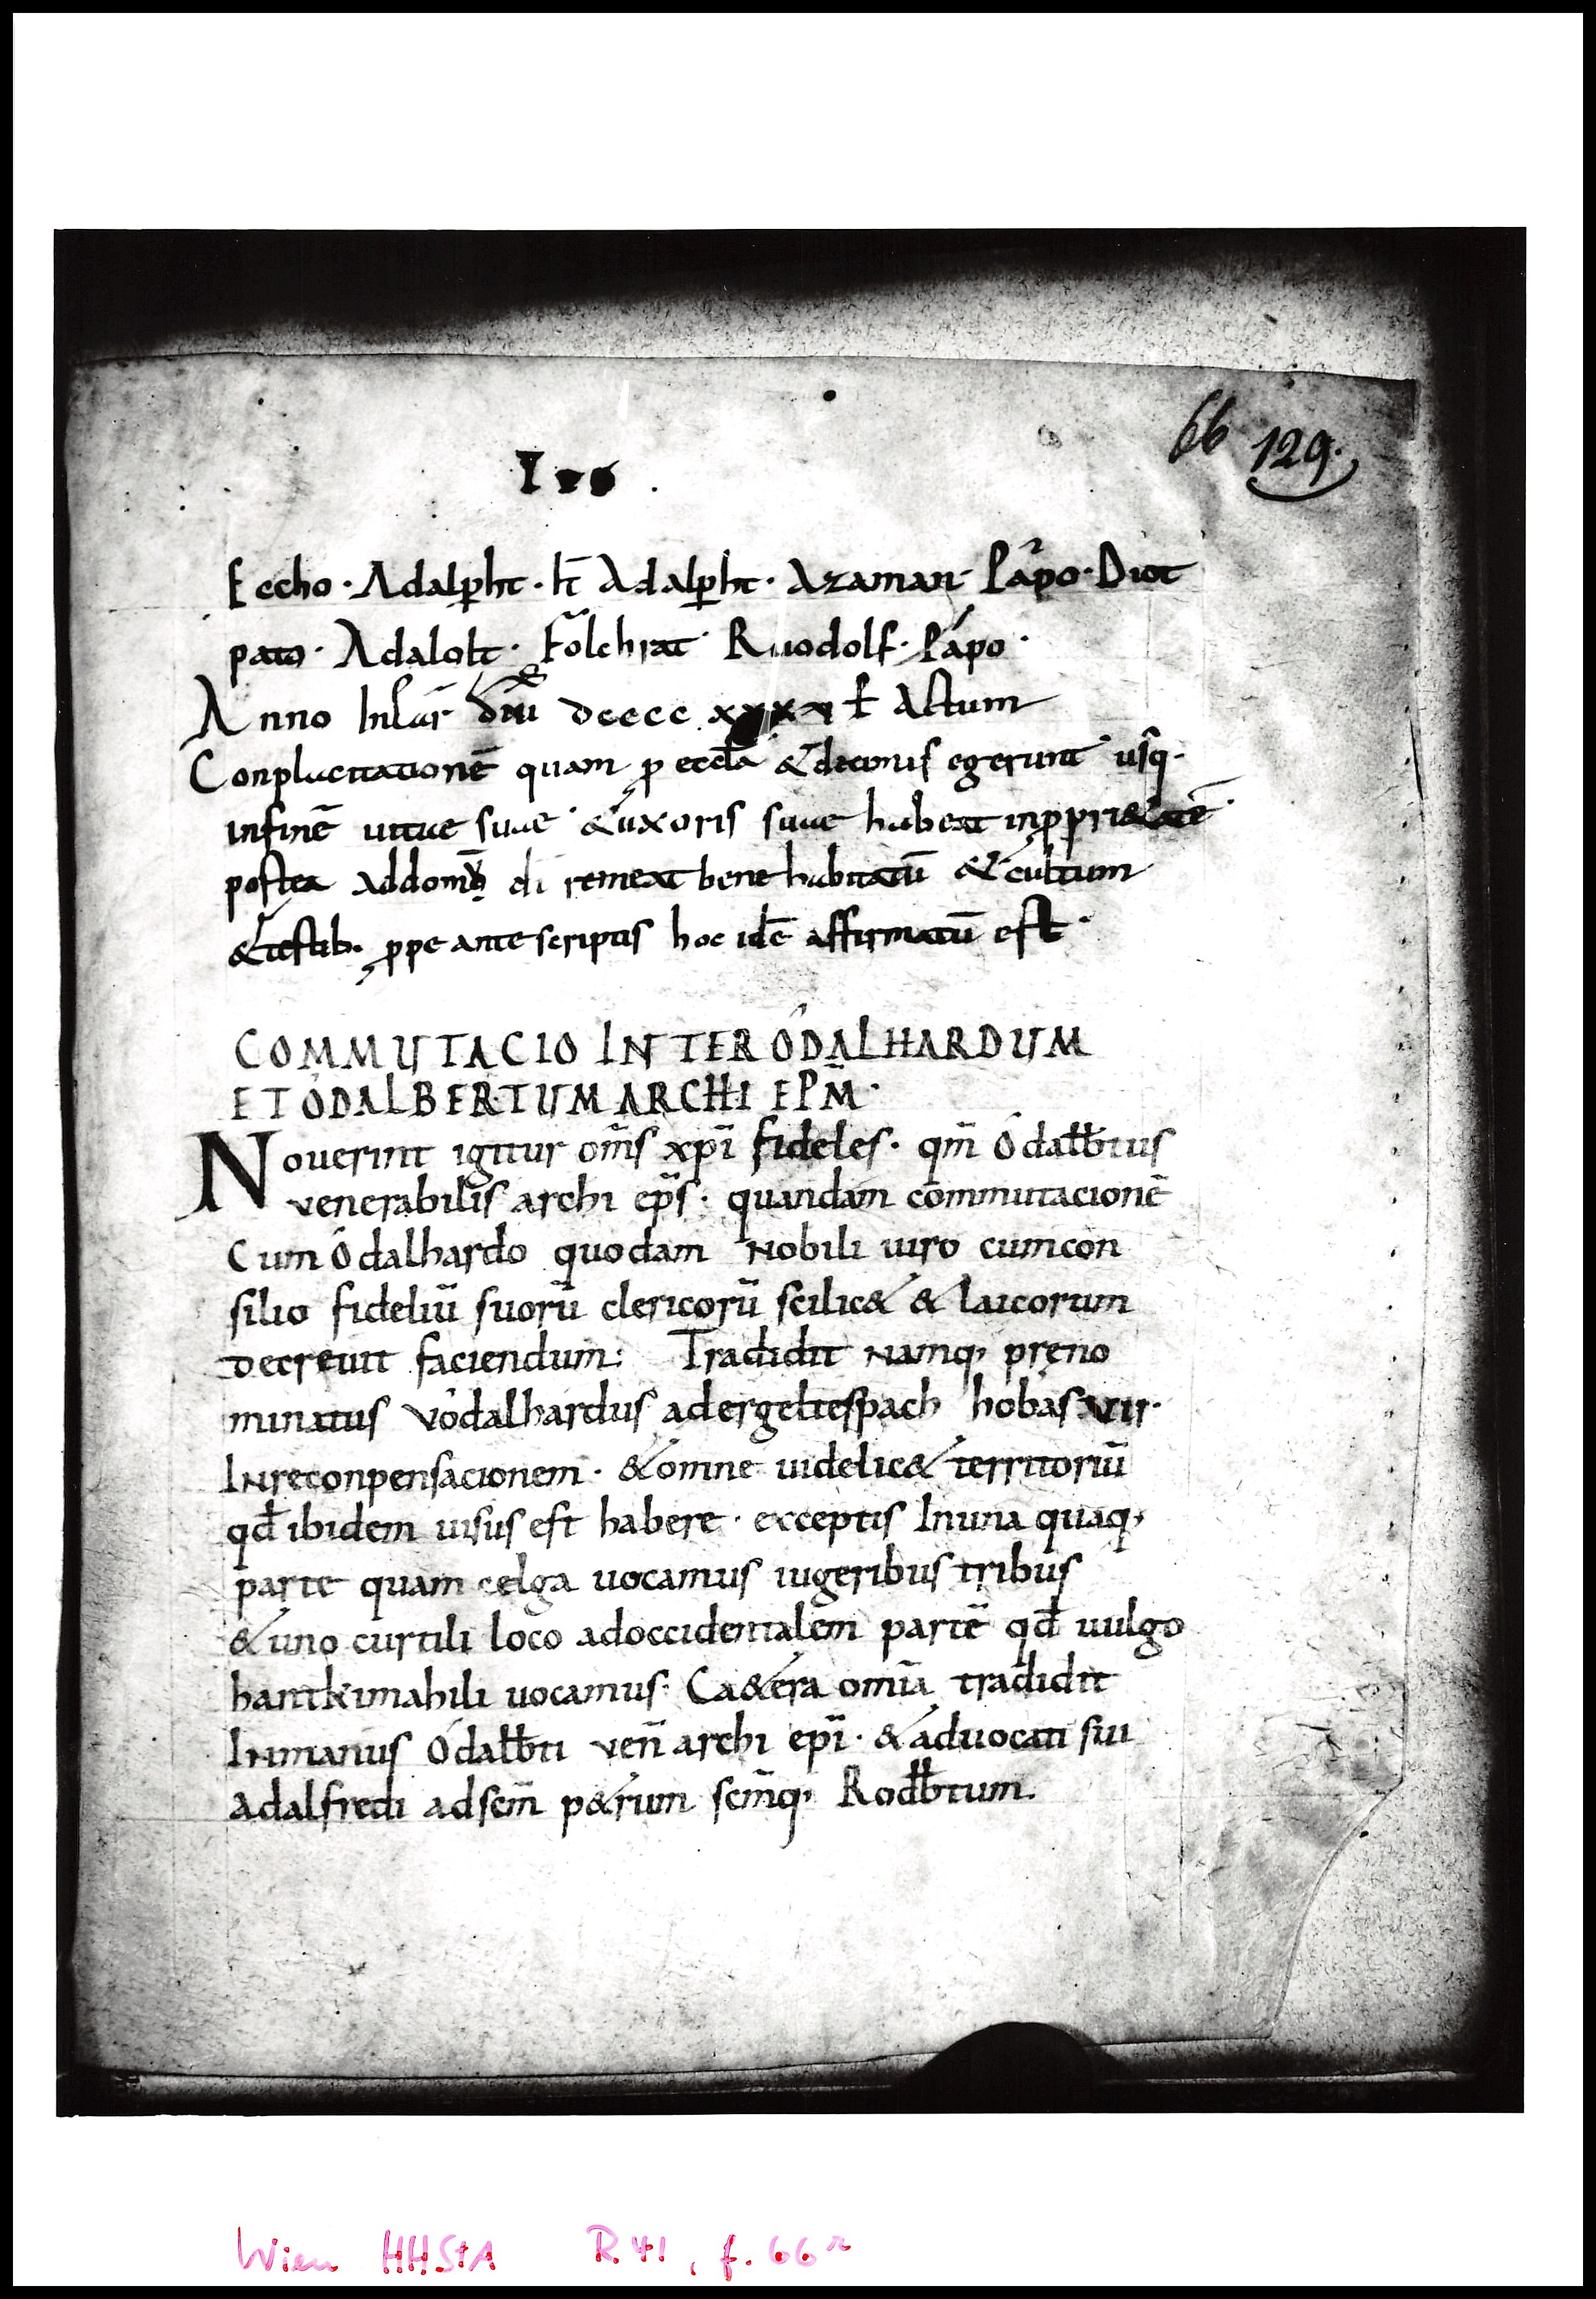 66 129.
Eccho · Adalp̄ht · It̄ Adalp̄ht · Azaman · Pápo · Diot
pato · Adalolt · Folchrat · Ruodolf · Pápo ·
Anno Incar̄ dn̄i dcccc Actum
Conplacitationē quam p ecclā & decimis egerunt usq·
infinē uitae suae & uxoris suae habeat inp̱prietatē ·
postea addomū di remeat bene habitatū & cultum
& testib· ꝓpe ante scriptis hoc idē affirmatū est ·
COMMUTACIO INTER ÓDALHARDUM
ET ÓDALBERTUM ARCHI EPM̄ ·
Nouerint igitur om̄s xp̄i fideles · qm̄ Ódalƀtus
venerabilis archi ep̄s · quandam commutacionē
Cum Ódalhardo quodam nobili uiro cumcon
silio fideliū suorū clericorū scilic& & laicorum
decreuit faciendum: Tradidit namq, pręno
minatus Vódalhardus adergeltespach hobas VII·
Inreconpensacionem · & omne uidelic& territoriū
qđ ibidem uisus est habere · exceptis Inuna quaq,
parte quam celga uocamus iugeribus tribus
& uno curtili loco adoccidentalem partē qđ uulgo
hantkimahili uocamus: Ca&era omīa tradidit
Inmanus Ódalƀti ven̄ archi ep̄i · & aduocati sui
Adalfredi adscm̄ p&rum scm̄q, Rodƀtum.
Wien HHStA R 41, f. 66r